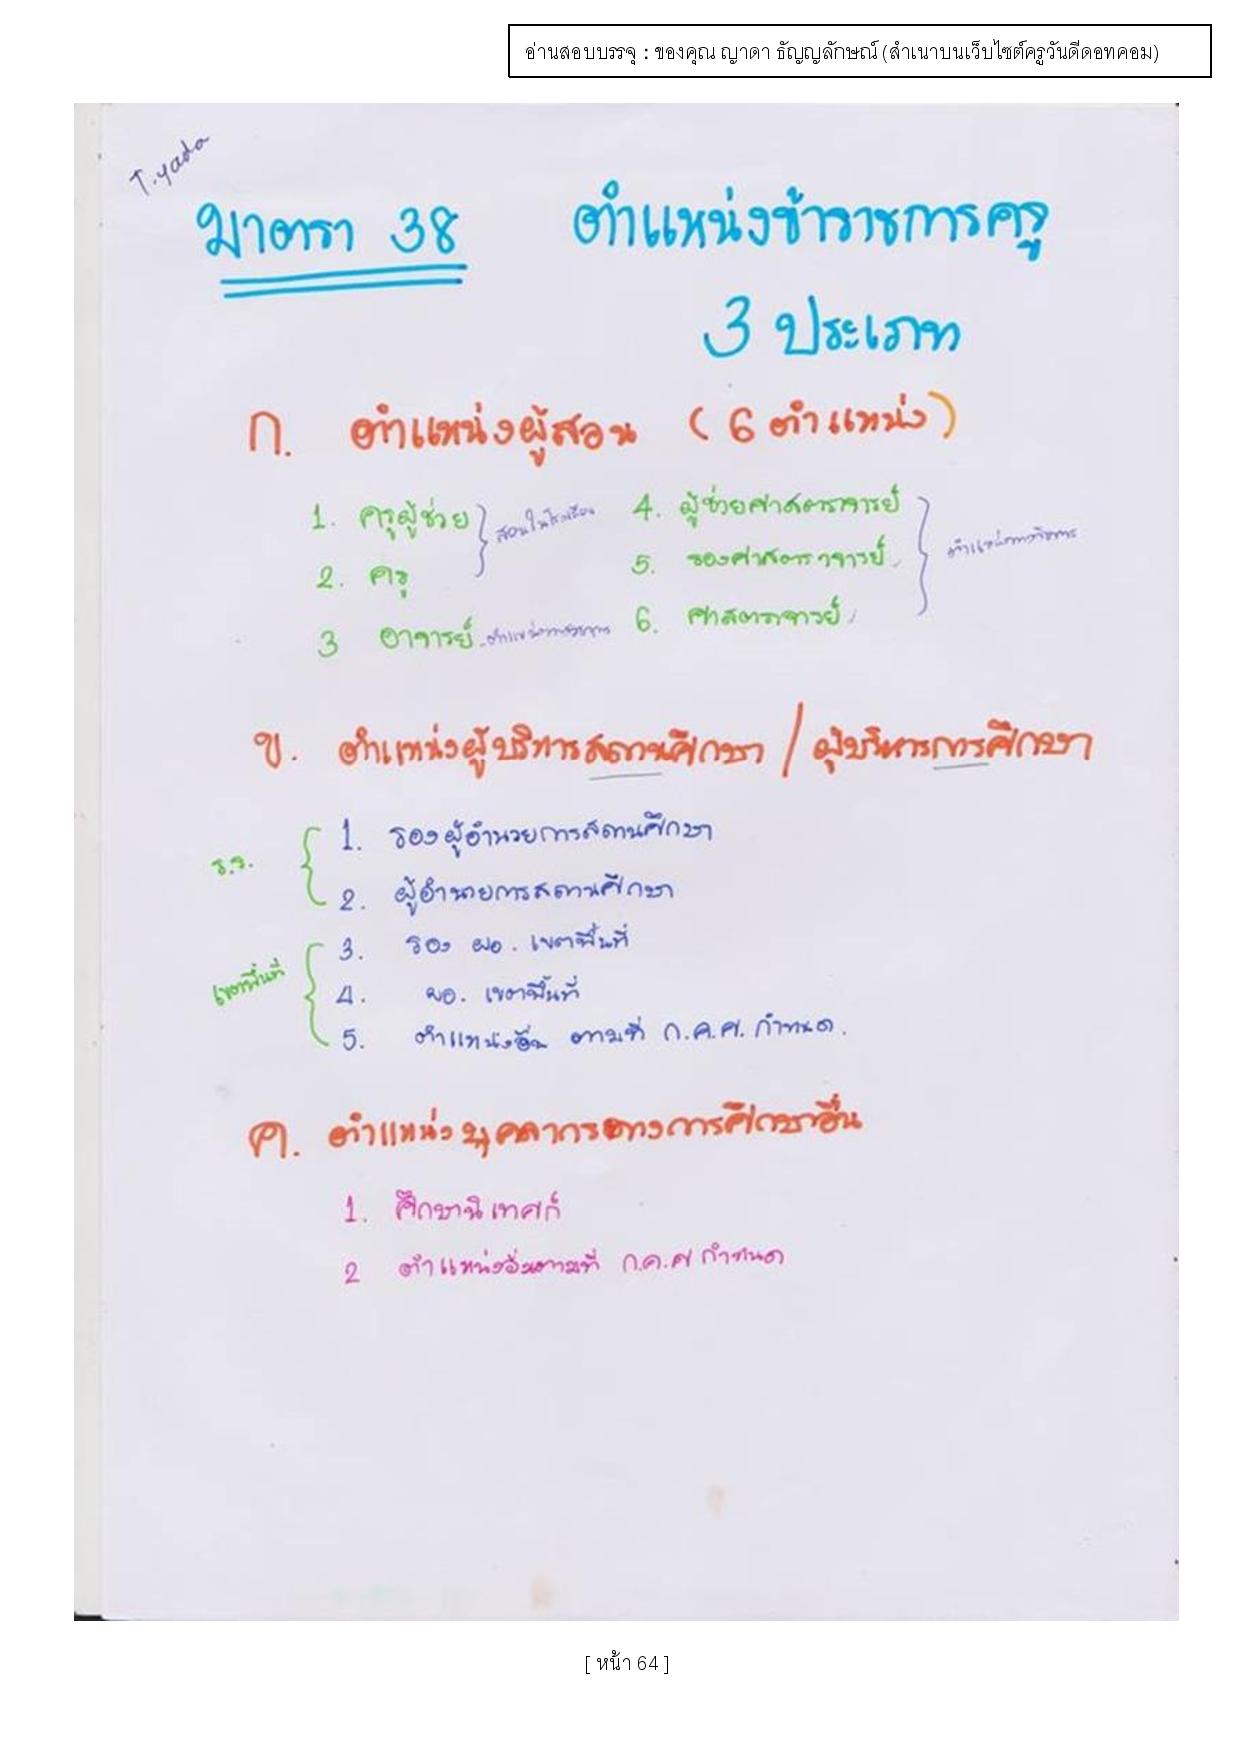 อ่านสอบบรรจุ : ของคุณ ญาดา ธัญญลักษณ์ (สำเนาบนเว็บไซต์ครูวันดีดอทคอม)
T.yada
มาตรา 38 ตำแหน่งข้าราชการครู
3 ประเภท
ก. ตำแหน่งผู้สอน (6 ตำแหน่ง)
1. ครูผู้ช่วย
2. ครู
สอนในโรงเรียน
3 อาจารย์ - ตำแหน่งทางวิชาการ
4. ผู้ช่วยศาสตราจารย์
5. รองศาสตราจารย์
6. ศาสตราจารย์
ตำแหน่งทางวิชาการ
ข. ตำแหน่งผู้บริหารสถานศึกษา / ผู้บริหารการศึกษา
ร.ร.
1. รองผู้อำนวยการสถานศึกษา
2. ผู้อำนวยการสถานศึกษา
เขตพื้นที่
3. รอง ผอ. เขตพื้นที่
4. ผอ. เขตพื้นที่
5. ตำแหน่งอื่น ตามที่ ก.ค.ศ. กำหนด.
ค. ตำแหน่งบุคลากรทางการศึกษาอื่น
1. ศึกษานิเทศก์
2 ตำแหน่งอื่นตามที่ ก.ค.ศ กำหนด
[ หน้า 64 ]